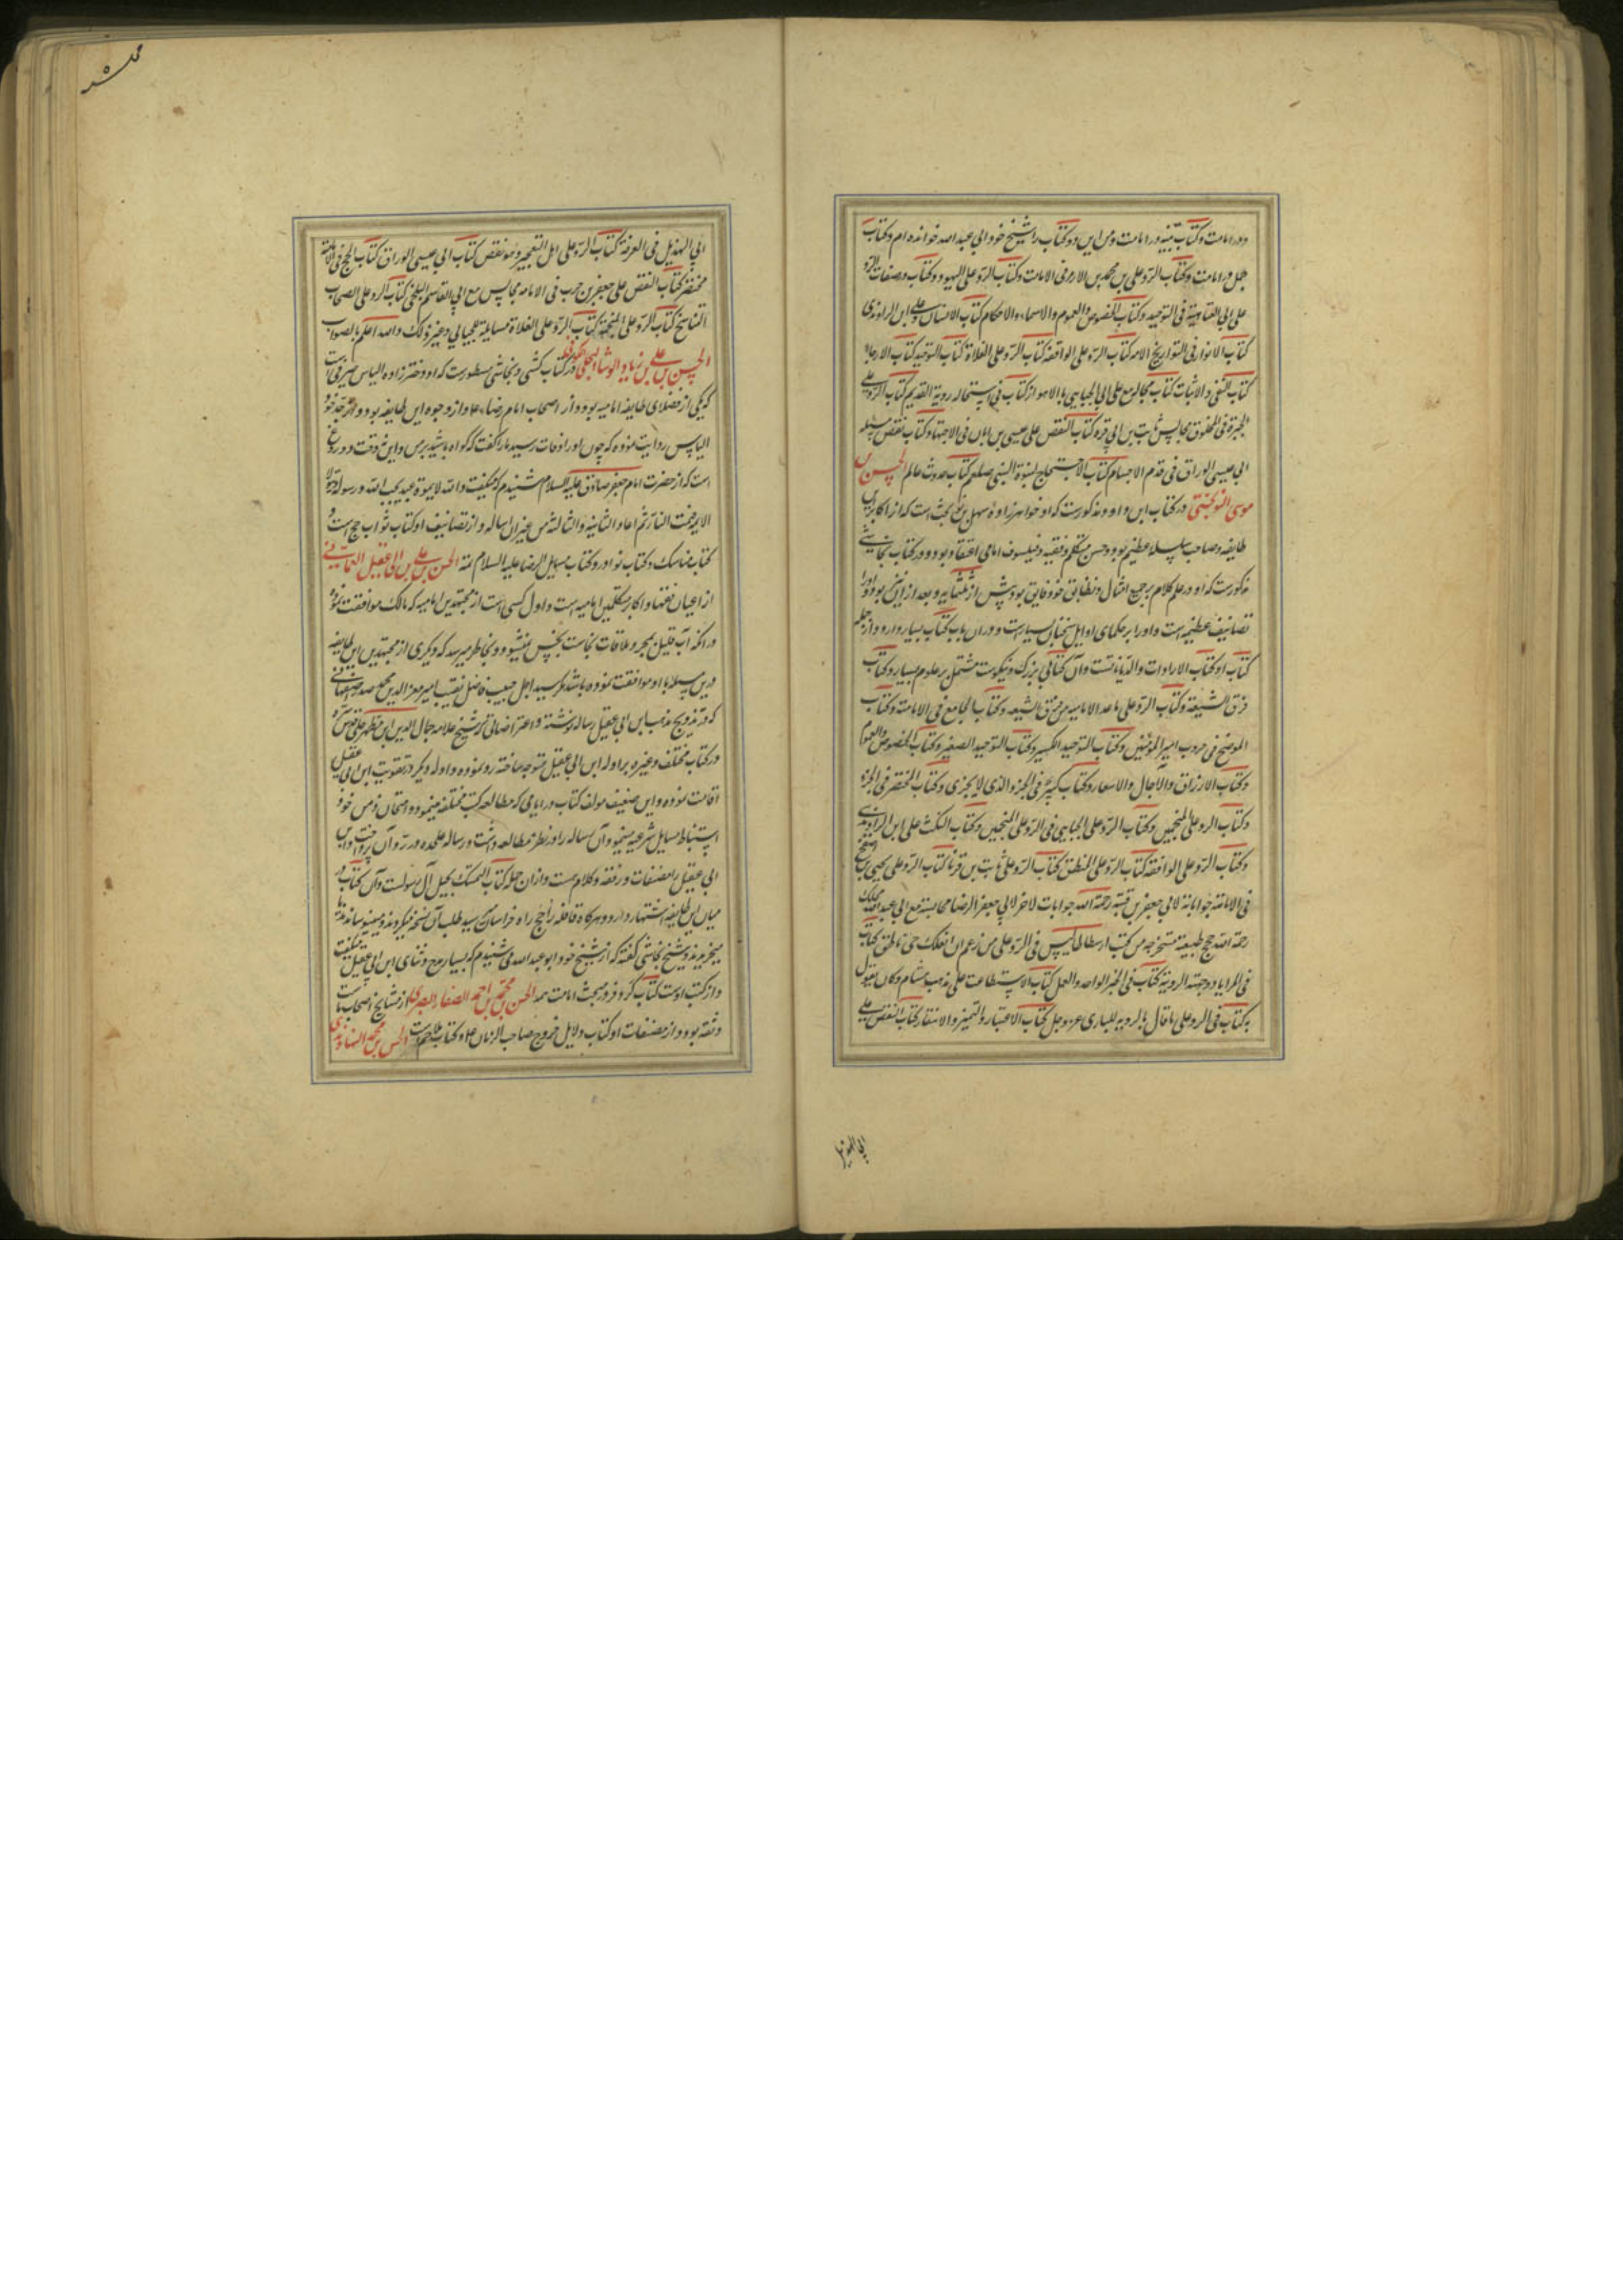 ودر امامت و کتاب تنبیه در امامت ومن این دو کتاب را بشیخ خود ابی عبد الله خوانده ام و کتاب
جمل در امامت و کتاب الرد علی بن محمد بن الازرق فی الامامت و کتاب الرد علی الیهود و کتاب در صفات الرد
علی ابی العتاهیة فی التوحید و کتاب الخصوص والعموم والاسماء والاحکام کتاب الانسان والرد علی ابن الراوندی
کتاب الانوار فی التواریخ الائمه کتاب الرد علی الواقفة کتاب الرد علی الغلاة کتاب التوحید کتاب الارجاء
کتاب النفی والاثبات کتاب مجالسه مع علی ابی الجبایی بالاهواز کتاب فی استحاله رویة القدیم کتاب الرد علی
المجبرة فی المخلوق مجالس ثابت بن ابی قره کتاب النقض علی عیسی بن ابان فی الاجتهاد کتاب نقض مسئله
ابی عیسی الوراق فی قدم الاجسام کتاب الاحتجاج لنبوة النبی صلعم کتاب حدوث عالم الحسن بن
موسی النوبختی در کتاب ابن داود مذکورست که او خواهرزادهٔ سهل بن نوبخت است که از اکابر این
طایفه وصاحب سلسله عظیم بود وحسن متکلم وفقیه وفیلسوف امامی اعتقاد بود ودر کتاب نجاشی
مذکورست که او در علم کلام بر جمیع امثال ونظایر خود فایق بود پیش از ثلثمایه وبعد از آن نیز بود واورا
تصانیف عظیمه است واورا بر حکمای اوایل سخنان بسیار است ودر آن باب کتاب بسیار دارد واز جمله
کتاب او کتاب الاراء والدیانتست وآن کتابی بزرک ونیکوست مشتمل بر علوم بسیار وکتاب
فرق الشیعة وکتاب الرد علی ماعدا الامامیه من فرق الشیعه وکتاب الجامع فی الامامت وکتاب
الموضح فی حروب امیر المومنین وکتاب التوحید الکبیر وکتاب التوحید الصغیر وکتاب الخصوص والعموم
وکتاب الارزاق والآجال والاسعار وکتاب کبیر فی الجزء الذی لایجزی وکتاب المختصر فی الجزء
وکتاب الرد علی المنجمین وکتاب الرد علی الجبایی فی الرد علی المنجمین وکتاب النکت علی ابن الراوندی
وکتاب الرد علی الواقفة کتاب الرد علی المنطق کتاب الرد علی ثابت بن قره کتاب الرد علی یحیی بن اصفح
فی الامامة جواباته لابی جعفر بن قبة رحمة الله جوابات لاخر لابی جعفر الرضا مجالسة مع ابی عبد الله مملک
رحمة الله حجج طبیعیة مستخرجه من کتب ارسطاطالیس فی الرد علی من زعم ان الفلک حی ناطق کتاب
فی المرایا وجهة الرویة کتاب فی الخبر الواحد والعمل کتاب الاستطاعت علی مذهب هشام وکان یقول
به کتاب فی الرد علی ما قال بالرویة للباری عز وجل کتاب الاعتبار والتمییز والانتقار کتاب النقض علی
ابی الهذیل
ابی الهذیل فی المعرفة کتاب الرد علی اهل التعجیز وهو نقض کتاب ابی عیسی الوراق کتاب الحجج فی الامامة
مختصر کتاب النقض علی جعفر بن حرب فی الامامه مجالس مع ابی القاسم البلخی کتاب الرد علی اصحاب
التناسخ کتاب الرد علی المجسمة کتاب الرد علی الغلاة مسایلة للجبایی وغیر ذلک والله اعلم بالصواب
الحسن بن علی بن زیاد الوشا البجلی الکوفی در کتاب کشی ونجاشی مسطورست که او دختر زاده الیاس صیرفی است
که یکی از فضلای طایفه امامیه بود واز اصحاب امام رضاء علا واز وجوه این طایفه بود واز جد خود
الیاس روایت نموده که چون اورا وفات رسید مارا گفت که گواه باشید بر من واین نه وقت دروغ
است که از حضرت امام جعفر صادق علیه السلام شنیدم که میگفت والله لا یموت عبد یحب الله ورسوله ویتولی
الایمه فتمسه النار ثم اعاد الثانیه والثالثه من غیر ان اساله واز تصانیف او کتاب ثواب حج است و
کتاب مناسک وکتاب نوادر وکتاب مسایل الرضا علیه السلام تمه الحسن بن علی بن ابی عقیل العمانی
از اعیان فقها واکابر متکلمین امامیه است واول کسی است از مجتهدین امامیه که با مالک موافقت نموده
در آنکه آب قلیل بمجرد ملاقات نجاست نجس نمیشود وبخاطر میرسد که دیگری از مجتهدین این طایفه
درین مسله با او موافقت نموده باشد مگر سید اجل حسیب فاضل نقیب امیر معز الدین محمد صدر اصفهانی
که در ترویج مذهب ابن ابی عقیل رساله نوشته واعتراضاتی که شیخ علامه جمال الدین ابن مطهر حلی قدس سره
در کتاب مختلف وغیره بر ادله ابن ابی عقیل متوجه ساخته رد نموده وادله دیگر در تقویت ابن ابی عقیل
اقامت نموده واین ضعیف مولف کتاب در ایامی که مطالعه کتب مختلفه مینمود وامتحان ذهن خود
استنباط مسایل شرعیه مینمود آن رساله را در نظر مطالعه داشت ورساله علیحده در رد آن پرداخت وابن
ابی عقیل را مصنفات در فقه وکلام هست وازان جمله کتاب المتمسک بحبل آل رسولست وآن کتاب در
میان این طایفه اشتهار دارد وهرگاه قافله حاج راه خراسان میرسید طلب آن نسخه میکردند ومینویساندند یا
میخریدند وشیخ نجاشی گفته که از شیخ خود ابو عبد الله می شنیدم که بسیار مدح وثنای ابن ابی عقیل میگفت
واز کتب اوست کتاب کر وفر در مبحث امامت تمه الحسن بن محمد بن احمد الصفار البصری از مشایخ اصحاب ماست
وثقه بود واز مصنفات او کتاب دلایل خروج صاحب الزمان علا وکتاب ملاحم است الحسن بن محمد النهاوندی